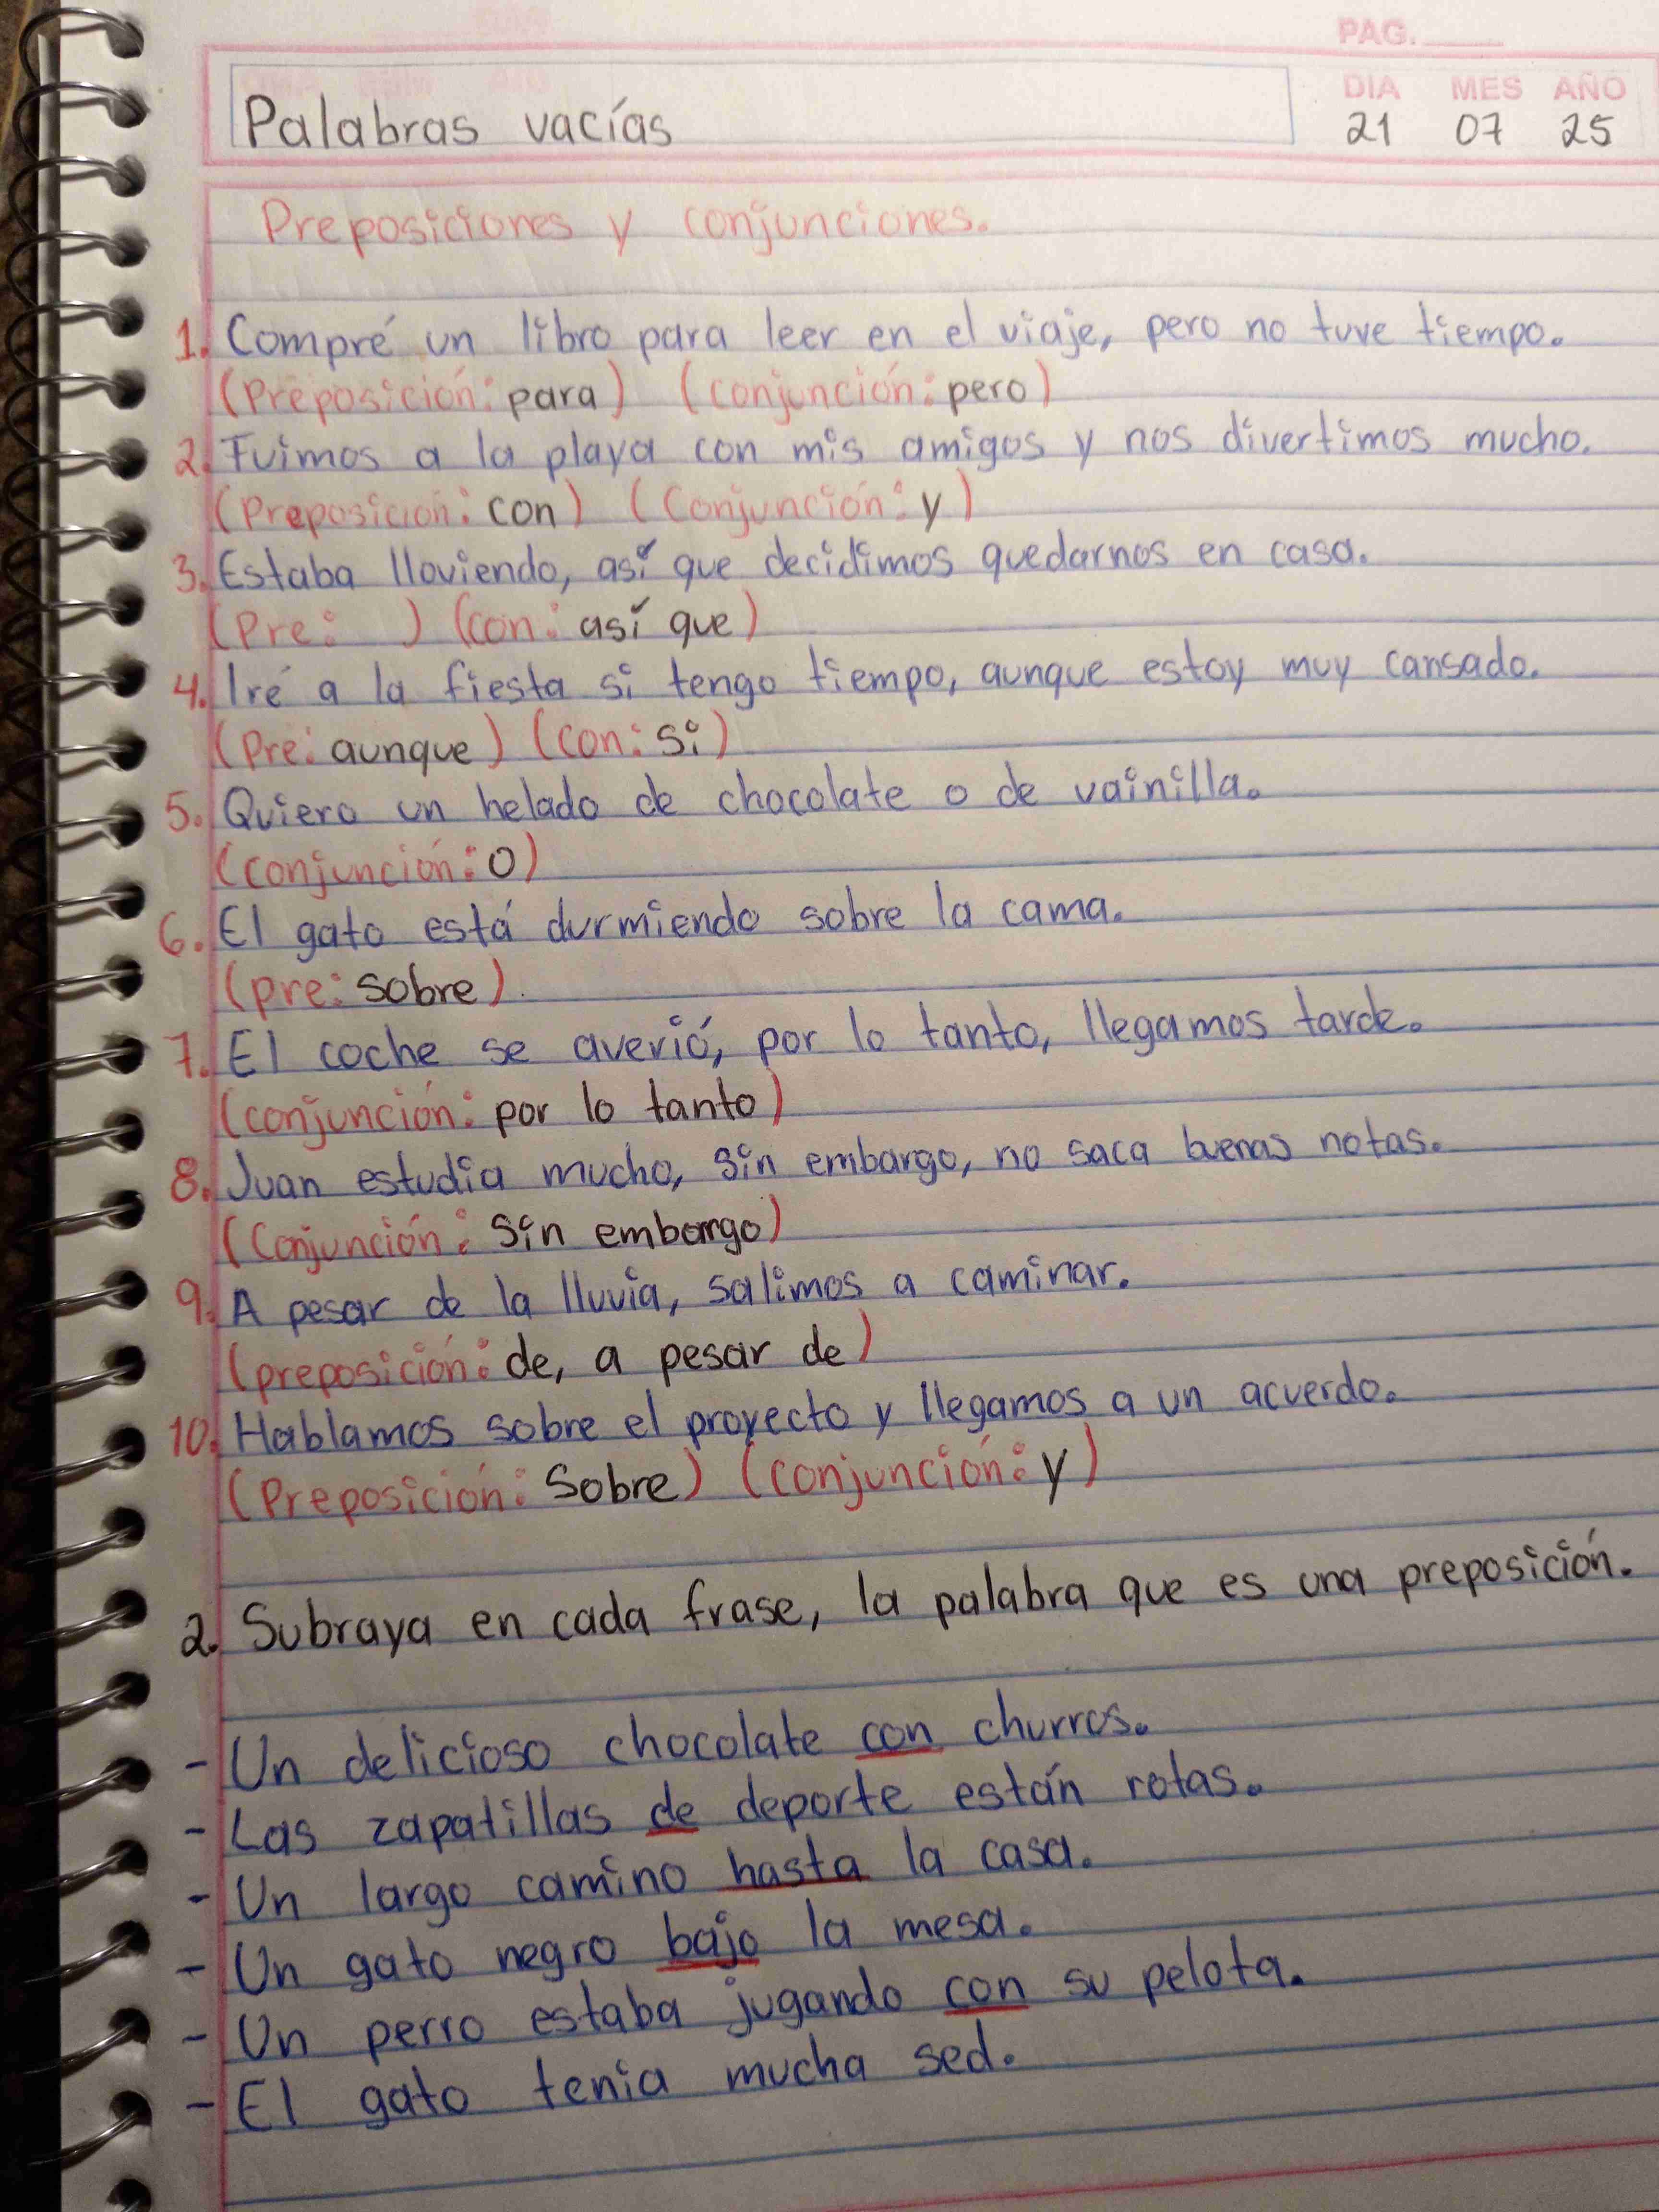 PAG.
DIA MES AÑO
Palabras vacías 21 07 25
Preposiciones y conjunciones.
1. Compré un libro para leer en el viaje, pero no tuve tiempo.
(Preposición: para) (conjunción: pero)
2. Fuimos a la playa con mis amigos y nos divertimos mucho.
(Preposición: con) (Conjunción: y)
3. Estaba lloviendo, así que decidimos quedarnos en casa.
(Pre: ) (con: así que)
4. Iré a la fiesta si tengo tiempo, aunque estoy muy cansado.
(Pre: aunque) (con: si)
5. Quiero un helado de chocolate o de vainilla.
(conjunción: O)
6. El gato está durmiendo sobre la cama.
(pre: sobre).
7. El coche se averió, por lo tanto, llegamos tarde.
(conjunción: por lo tanto)
8. Juan estudia mucho, sin embargo, no saca buenas notas.
(Conjunción: Sin embargo)
9. A pesar de la lluvia, salimos a caminar.
(preposición: de, a pesar de)
10. Hablamos sobre el proyecto y llegamos a un acuerdo.
(Preposición: Sobre) (conjunción: y)
2. Subraya en cada frase, la palabra que es una preposición.
- Un delicioso chocolate con churros.
- Las zapatillas de deporte están rotas.
- Un largo camino hasta la casa.
- Un gato negro bajo la mesa.
- Un perro estaba jugando con su pelota.
- El gato tenia mucha sed.